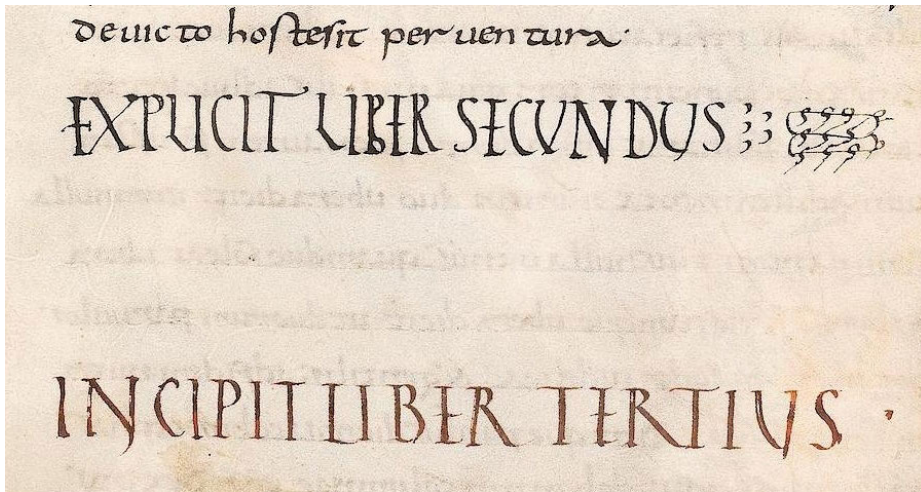 deuicto hostesit peruentura·
EXPLICIT LIBER SECUNDUS
INCIPIT LIBER TERTIUS ·